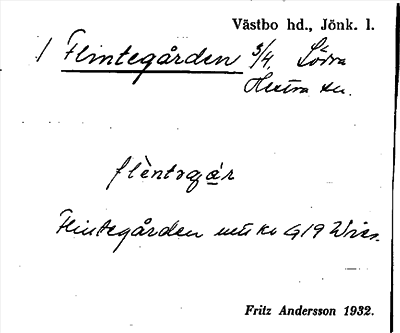 Västbo hd., Jönk. l.
1 Flintegården 3/4, Södra
Hestra sn.
flèntagár
Flintegården
Fritz Andersson 1932.